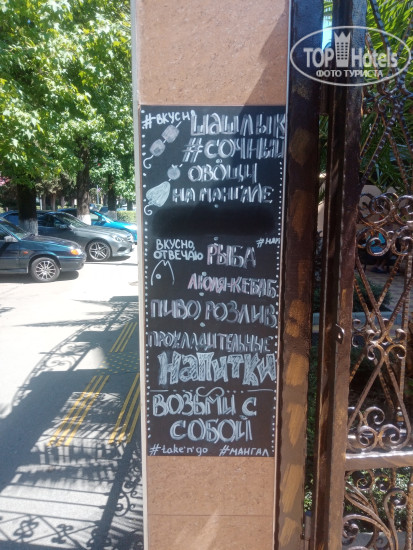 TOPHotels
ФОТО ТУРИСТА
#ВКУСН
ШАШЛЫК
#СОЧНЫ
ОВОЩИ
НА МАНГАЛЕ
ВКУСНО,
ОТВЕЧАЮ
РЫБА
ЛЮЛЯ-КЕБАБ
ПИВО РОЗЛИВ
ПРОХЛАДИТЕЛЬНЫЕ
НАПИТКИ
ВОЗЬМИ С
СОБОЙ
#take'n'go #МАНГАЛ